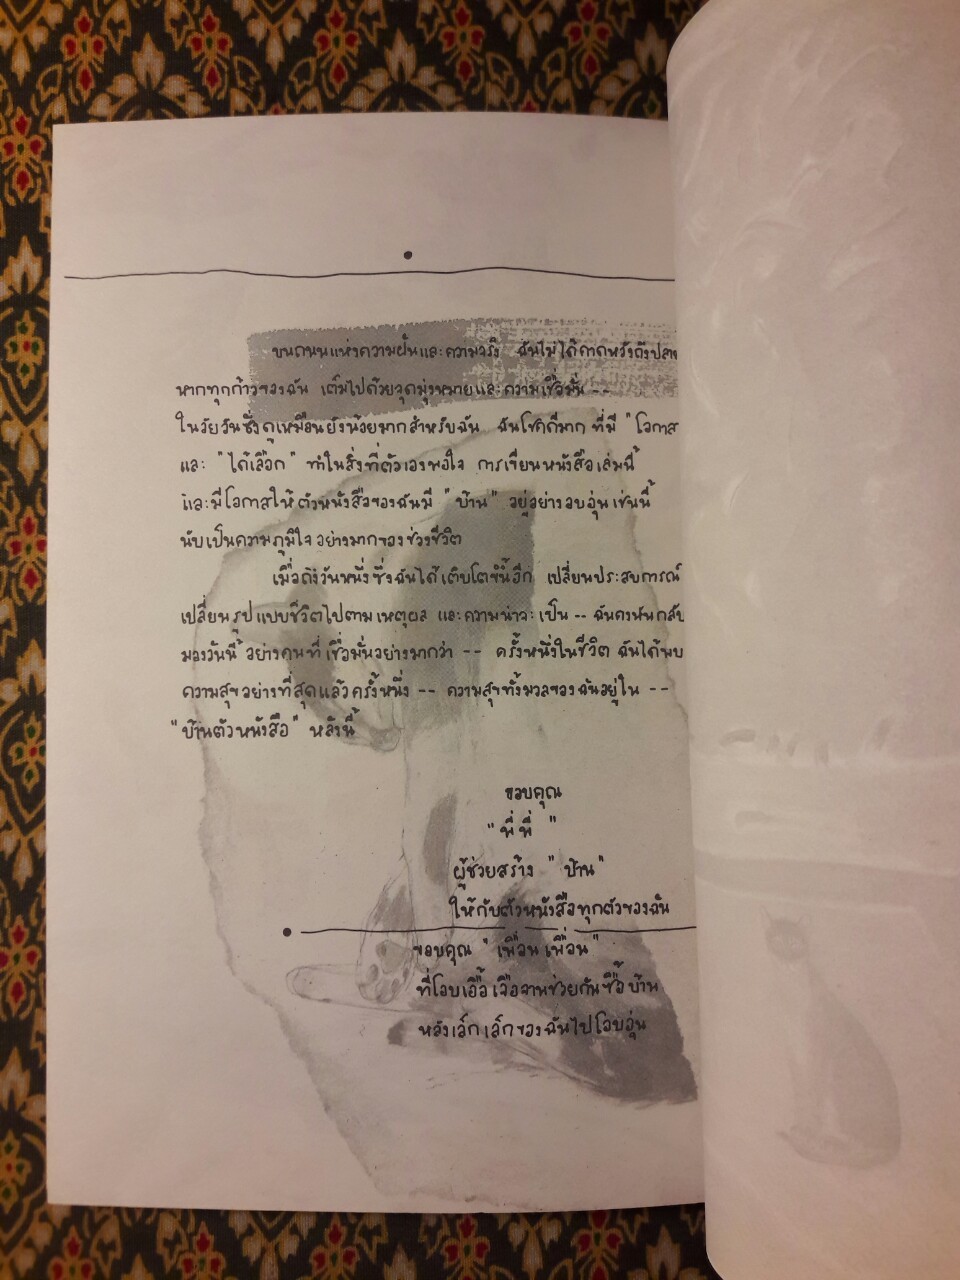 บนถนนแห่งความฝันและความจริง ฉันไม่ได้คาดหวังถึงปลาย
หากทุกก้าวของฉัน เต็มไปด้วยจุดมุ่งหมายและความเชื่อมั่น --
ในวัยวันซึ่งดูเหมือนยังน้อยมากสำหรับฉัน ฉันโชคดีมาก ที่มี "โอกาส
และ "ได้เลือก" ทำในสิ่งที่ตัวเองพอใจ การเขียนหนังสือเล่มนี้
และมีโอกาสให้ตัวหนังสือของฉันมี "บ้าน" อยู่อย่างอบอุ่นเช่นนี้
นับเป็นความภูมิใจอย่างมากของช่วงชีวิต
เมื่อถึงวันหนึ่งซึ่งฉันได้เติบโตขึ้นอีก เปลี่ยนประสบการณ์
เปลี่ยนรูปแบบชีวิตไปตามเหตุผล และความน่าจะเป็น -- ฉันคงหันกลับ
มองวันนี้ อย่างคนที่เชื่อมั่นอย่างมากว่า -- ครั้งหนึ่งในชีวิต ฉันได้พบ
ความสุขอย่างที่สุดแล้วครั้งหนึ่ง -- ความสุขทั้งมวลของฉันอยู่ใน --
"บ้านตัวหนังสือ" หลังนี้
ขอบคุณ
"พี่พี่ "
ผู้ช่วยสร้าง "บ้าน"
ให้กับตัวหนังสือทุกตัวของฉัน
ขอบคุณ "เพื่อนเพื่อน"
ที่โอบเอื้อเจือจานช่วยกันซื้อบ้าน
หลังเล็กเล็กของฉันไปโอบอุ่น